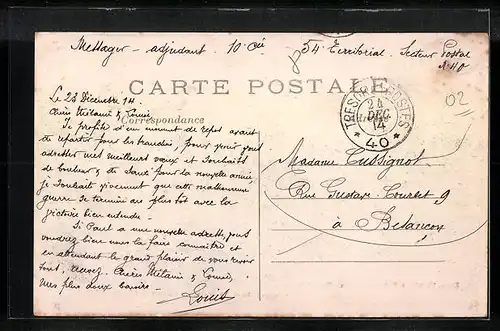 Messager - adjudant - 10e Cie 54 Territorial. Secteur Postal
N° 40
CARTE POSTALE
Correspondance
TRESOR ET POSTES
24
DEC
14
* 40 *
02
Le 23 Décembre 14
Chères Mélanie &
Je profite d'un moment de repos avant
de repartir pour les tranchées, pour venir vous
adresser mes meilleurs vœux et souhaits
de bonheur & de santé pour la nouvelle année
je souhaite vivement que cette malheureuse
guerre se termine au plus tôt avec la
victoire bien entendu -
Si Paul a une nouvelle adresse vous
voudrez bien me la faire connaître et
en attendant le grand plaisir de vous revoir
tous, recevez Chères Mélanie &
mes plus doux baisers -
Louis
Madame Cussignot
Rue Gustave Courbet 9
à Besançon